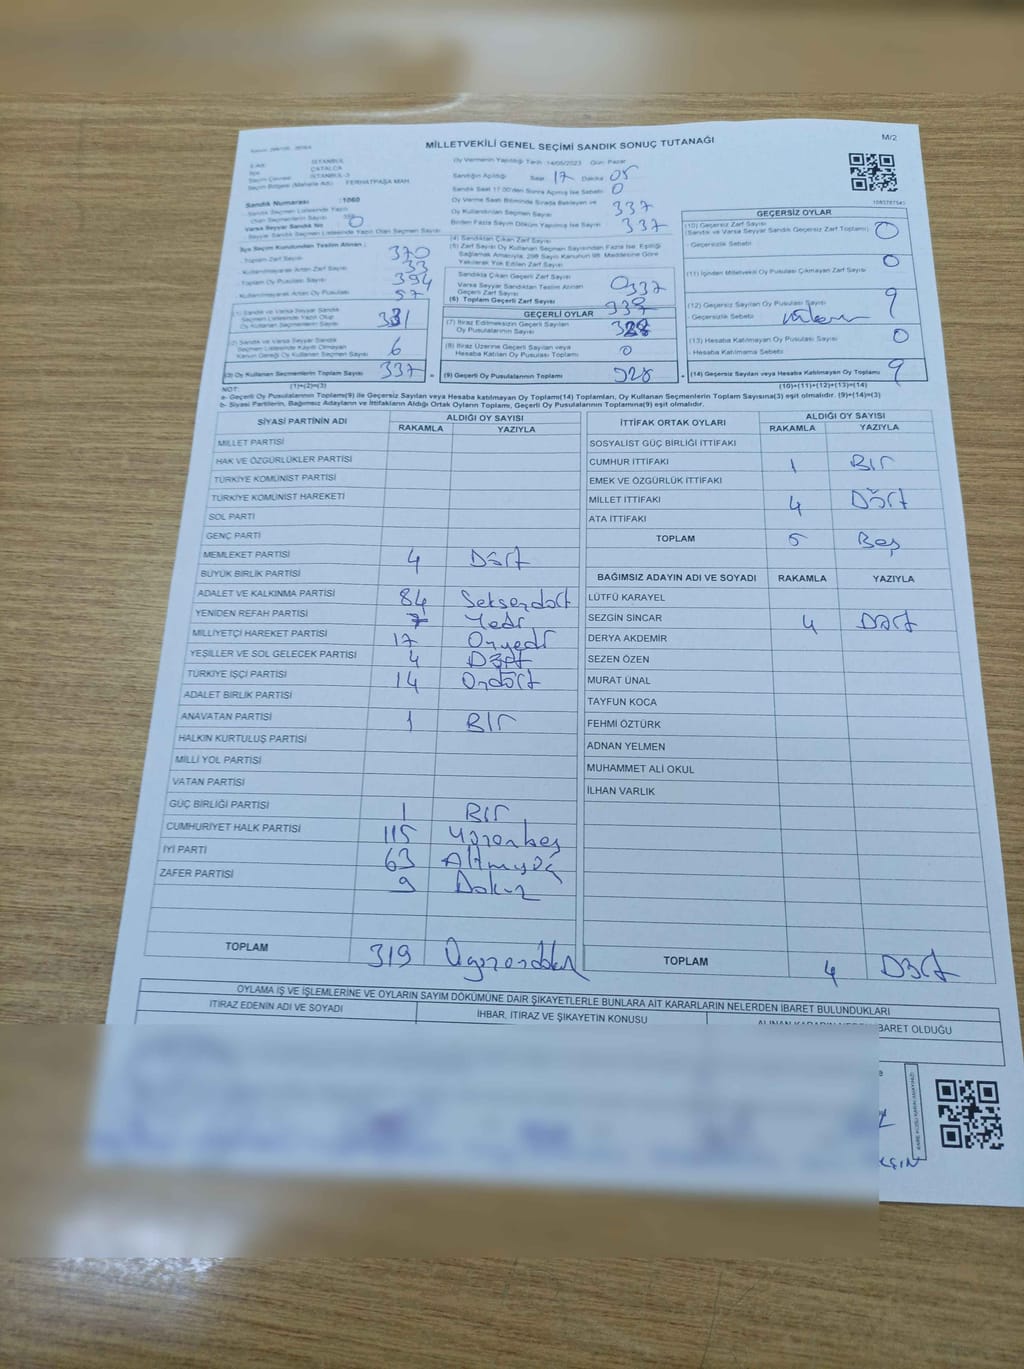 MİLLETVEKİLİ GENEL SEÇİMİ SANDIK SONUÇ TUTANAĞI
M/2
İSTANBUL
ÇATALCA
İSTANBUL-3
Seçim Bölgesi (Mahalle Adı) : FERHATPAŞA MAH.
Sandık Numarası :1060
Oy Vermenin Yapıldığı Tarih :14/05/2023 Gün: Pazar
Sandığın Açıldığı Saat 17 Dakika 05
Sandık Saat 17.00'den Sonra Açılmış İse Sebebi: 0
Oy Verme Saati Bitiminde Sırada Bekleyen ve
Oy Kullandırılan Seçmen Sayısı 337
Birden Fazla Sayım Dökümü Yapılmış İse Sayısı 337
Varsa Seyyar Sandık No 0
İlçe Seçim Kurulundan Teslim Alınan ;
- Toplam Zarf Sayısı 370
- Kullanılmayarak Artan Zarf Sayısı 33
- Toplam Oy Pusulası Sayısı 394
- Kullanılmayarak Artan Oy Pusulası 57
(1) Sandık ve Varsa Seyyar Sandık
Seçmen Listesinde Yazılı Olup
Oy Kullanan Seçmenlerin Sayısı 331
(2) Sandık ve Varsa Seyyar Sandık
Seçmen Listesinde Kayıtlı Olmayan
Kanun Gereği Oy Kullanan Seçmen Sayısı 6
(3) Oy Kullanan Seçmenlerin Toplam Sayısı 337
(1)+(2)=(3)
(4) Sandıktan Çıkan Zarf Sayısı
(5) Zarf Sayısı Oy Kullanan Seçmen Sayısından Fazla ise, Eşitliği
Sağlamak Amacıyla, 298 Sayılı Kanunun 98. Maddesine Göre
Yakılarak Yok Edilen Zarf Sayısı
Sandıkta Çıkan Geçerli Zarf Sayısı
Varsa Seyyar Sandıktan Teslim Alınan
Geçerli Zarf Sayısı 0 337
(6) Toplam Geçerli Zarf Sayısı
GEÇERLİ OYLAR
(7) İtiraz Edilmeksizin Geçerli Sayılan
Oy Pusulalarının Sayısı 328
(8) İtiraz Üzerine Geçerli Sayılan veya
Hesaba Katılan Oy Pusulası Toplamı 0
(9) Geçerli Oy Pusulalarının Toplamı 328
GEÇERSİZ OYLAR
(10) Geçersiz Zarf Sayısı
(Sandık ve Varsa Seyyar Sandık Geçersiz Zarf Toplamı) 0
- Geçersizlik Sebebi
(11) İçinden Milletvekili Oy Pusulası Çıkmayan Zarf Sayısı 0
(12) Geçersiz Sayılan Oy Pusulası Sayısı 9
- Geçersizlik Sebebi
(13) Hesaba Katılmayan Oy Pusulası Sayısı 0
- Hesaba Katılmama Sebebi
(14) Geçersiz Sayılan veya Hesaba Katılmayan Oy Toplamı 9
(10)+(11)+(12)+(13)=(14)
NOT:
a- Geçerli Oy Pusulalarının Toplamı(9) ile Geçersiz Sayılan veya Hesaba Katılmayan Oy Toplamı(14) Toplamları, Oy Kullanan Seçmenlerin Toplam Sayısına(3) eşit olmalıdır. (9)+(14)=(3)
b- Siyasi Partilerin, Bağımsız Adayların ve İttifakların Aldığı Ortak Oyların Toplamı, Geçerli Oy Pusulalarının Toplamına(9) eşit olmalıdır.
SİYASİ PARTİNİN ADI ALDIĞI OY SAYISI
RAKAMLA YAZIYLA
MİLLET PARTİSİ
HAK VE ÖZGÜRLÜKLER PARTİSİ
TÜRKİYE KOMÜNİST PARTİSİ
TÜRKİYE KOMÜNİST HAREKETİ
SOL PARTİ
GENÇ PARTİ
MEMLEKET PARTİSİ 4 Dört
BÜYÜK BİRLİK PARTİSİ
ADALET VE KALKINMA PARTİSİ 84 Seksendört
YENİDEN REFAH PARTİSİ 7 Yedi
MİLLİYETÇİ HAREKET PARTİSİ 17 Onyedi
YEŞİLLER VE SOL GELECEK PARTİSİ 4 Dört
TÜRKİYE İŞÇİ PARTİSİ 14 Ondört
ADALET BİRLİK PARTİSİ
ANAVATAN PARTİSİ 1 Bir
HALKIN KURTULUŞ PARTİSİ
MİLLİ YOL PARTİSİ
VATAN PARTİSİ
GÜÇ BİRLİĞİ PARTİSİ 1 Bir
CUMHURİYET HALK PARTİSİ 115 Yüzonbeş
İYİ PARTİ 63 Altmışüç
ZAFER PARTİSİ 9 Dokuz
TOPLAM 319 Üçyüzondokuz
İTTİFAK ORTAK OYLARI ALDIĞI OY SAYISI
RAKAMLA YAZIYLA
SOSYALİST GÜÇ BİRLİĞİ İTTİFAKI
CUMHUR İTTİFAKI 1 Bir
EMEK VE ÖZGÜRLÜK İTTİFAKI
MİLLET İTTİFAKI 4 Dört
ATA İTTİFAKI
TOPLAM 5 Beş
BAĞIMSIZ ADAYIN ADI VE SOYADI RAKAMLA YAZIYLA
LÜTFÜ KARAYEL
SEZGİN SİNCAR 4 Dört
DERYA AKDEMİR
SEZEN ÖZEN
MURAT ÜNAL
TAYFUN KOCA
FEHMİ ÖZTÜRK
ADNAN YELMEN
MUHAMMET ALİ OKUL
İLHAN VARLIK
TOPLAM 4 Dört
OYLAMA İŞ VE İŞLEMLERİNE VE OYLARIN SAYIM DÖKÜMÜNE DAİR ŞİKAYETLERLE BUNLARA AİT KARARLARIN NELERDEN İBARET BULUNDUKLARI
İTİRAZ EDENİN ADI VE SOYADI
İHBAR, İTİRAZ VE ŞİKAYETİN KONUSU
İBARET OLDUĞU